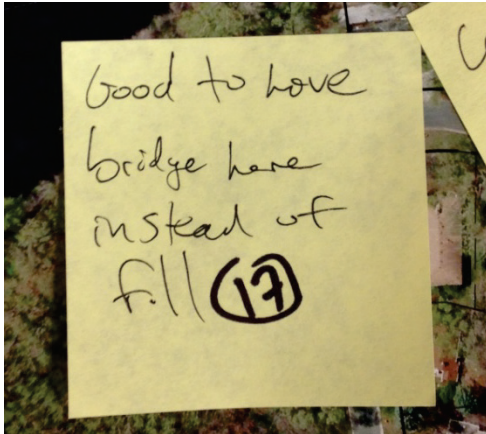 Good to have
bridge here
instead of
fill 17